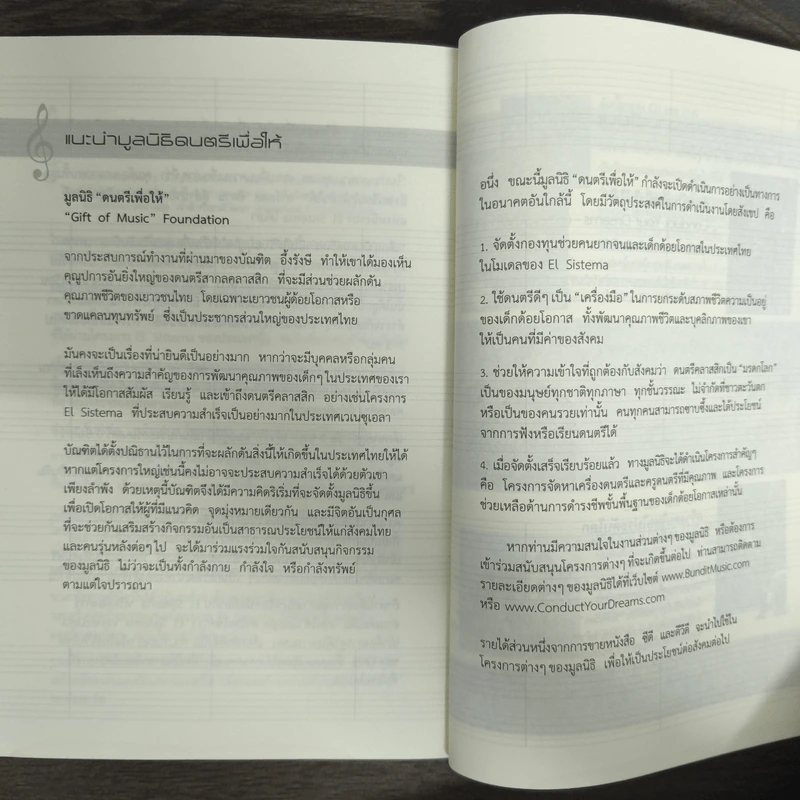 แนะนำมูลนิธิดนตรีเพื่อให้
มูลนิธิ “ดนตรีเพื่อให้”
“Gift of Music” Foundation
จากประสบการณ์ทำงานที่ผ่านมาของบัณฑิต อึ้งรังษี ทำให้เขาได้มองเห็น
คุณูปการอันยิ่งใหญ่ของดนตรีสากลคลาสสิก ที่จะมีส่วนช่วยผลักดัน
คุณภาพชีวิตของเยาวชนไทย โดยเฉพาะเยาวชนผู้ด้อยโอกาสหรือ
ขาดแคลนทุนทรัพย์ ซึ่งเป็นประชากรส่วนใหญ่ของประเทศไทย
มันคงจะเป็นเรื่องที่น่ายินดีเป็นอย่างมาก หากว่าจะมีบุคคลหรือกลุ่มคน
ที่เล็งเห็นถึงความสำคัญของการพัฒนาคุณภาพของเด็กๆ ในประเทศของเรา
ให้ได้มีโอกาสสัมผัส เรียนรู้ และเข้าถึงดนตรีคลาสสิก อย่างเช่นโครงการ
El Sistema ที่ประสบความสำเร็จเป็นอย่างมากในประเทศเวเนซุเอลา
บัณฑิตได้ตั้งปณิธานไว้ในการที่จะผลักดันสิ่งนี้ให้เกิดขึ้นในประเทศไทยให้ได้
หากแต่โครงการใหญ่เช่นนี้คงไม่อาจจะประสบความสำเร็จได้ด้วยตัวเขา
เพียงลำพัง ด้วยเหตุนี้บัณฑิตจึงได้มีความคิดริเริ่มที่จะจัดตั้งมูลนิธิขึ้น
เพื่อเปิดโอกาสให้ผู้ที่มีแนวคิด จุดมุ่งหมายเดียวกัน และมีจิตอันเป็นกุศล
ที่จะช่วยกันเสริมสร้างกิจกรรมอันเป็นสาธารณประโยชน์ให้แก่สังคมไทย
และคนรุ่นหลังต่อๆ ไป จะได้มาร่วมแรงร่วมใจกันสนับสนุนกิจกรรม
ของมูลนิธิ ไม่ว่าจะเป็นทั้งกำลังกาย กำลังใจ หรือกำลังทรัพย์
ตามแต่ใจปรารถนา
อนึ่ง ขณะนี้มูลนิธิ “ดนตรีเพื่อให้” กำลังจะเปิดดำเนินการอย่างเป็นทางการ
ในอนาคตอันใกล้นี้ โดยมีวัตถุประสงค์ในการดำเนินงานโดยสังเขป คือ
1. จัดตั้งกองทุนช่วยคนยากจนและเด็กด้อยโอกาสในประเทศไทย
ในโมเดลของ El Sistema
2. ใช้ดนตรีดีๆ เป็น “เครื่องมือ” ในการยกระดับสภาพชีวิตความเป็นอยู่
ของเด็กด้อยโอกาส ทั้งพัฒนาคุณภาพชีวิตและบุคลิกภาพของเขา
ให้เป็นคนที่มีค่าของสังคม
3. ช่วยให้ความเข้าใจที่ถูกต้องกับสังคมว่า ดนตรีคลาสสิกเป็น “มรดกโลก”
เป็นของมนุษย์ทุกชาติทุกภาษา ทุกชั้นวรรณะ ไม่จำกัดที่ชาวตะวันตก
หรือเป็นของคนรวยเท่านั้น คนทุกคนสามารถซาบซึ้งและได้ประโยชน์
จากการฟังหรือเรียนดนตรีได้
4. เมื่อจัดตั้งเสร็จเรียบร้อยแล้ว ทางมูลนิธิจะได้ดำเนินโครงการสำคัญๆ
คือ โครงการจัดหาเครื่องดนตรีและครูดนตรีที่มีคุณภาพ และโครงการ
ช่วยเหลือด้านการดำรงชีพขั้นพื้นฐานของเด็กด้อยโอกาสเหล่านั้น
หากท่านมีความสนใจในงานส่วนต่างๆ ของมูลนิธิ หรือต้องการ
เข้าร่วมสนับสนุนโครงการต่างๆ ที่จะเกิดขึ้นต่อไป ท่านสามารถติดตาม
รายละเอียดต่างๆ ของมูลนิธิได้ที่เว็บไซต์ www.BunditMusic.com
หรือ www.ConductYourDreams.com
รายได้ส่วนหนึ่งจากการขายหนังสือ ซีดี และดีวีดี จะนำไปใช้ใน
โครงการต่างๆ ของมูลนิธิ เพื่อให้เป็นประโยชน์ต่อสังคมต่อไป